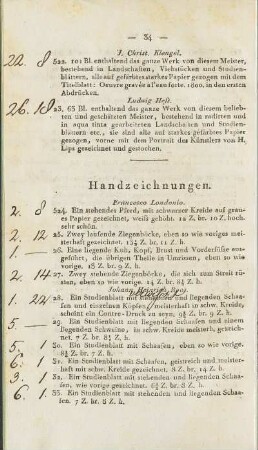 — 34 —
J. Christ. Klengel.
22. 8 522. 101 Bl. enthaltend das ganze Werk von diesem Meister,
bestehend in Landschaften, Viehstücken und Studien-
blättern, alle auf gefärbtes starkes Papier gezogen mit dem
Titelblatt: Oeuvre gravée à l'eau forte. 1800. in den ersten
Abdrücken.
Ludwig Heß.
26. 18 23. 63 Bl. enthaltend das ganze Werk von diesem belieb-
ten und geschätzten Meister, bestehend in radirten und
in aqua tinta gearbeiteten Landschaften und Studien-
blättern etc., sie sind alle auf starkes gefärbtes Papier
gezogen, vorne mit dem Portrait des Künstlers von H.
Lips gezeichnet und gestochen.
Handzeichnungen.
Francesco Londonio.
2. 8 524. Ein stehendes Pferd, mit schwarzer Kreide auf grau-
es Papier gezeichnet, weiß gehöht. 12 Z. br. 10 Z. hoch.
sehr schön.
2. 12 25. Zwey laufende Ziegenböcke, eben so wie voriges mei-
sterhaft gezeichnet. 13¾ Z. br. 11 Z. h.
1. – 26. Eine liegende Kuh, Kopf, Brust und Vorderfüße aus-
geführt, die übrigen Theile in Umrissen, eben so wie
vorige. 18 Z. br. 9 Z. h.
2. 14 27. Zwey stehende Ziegenböcke, die sich zum Streit rü-
sten, eben so wie vorige. 14 Z. br. 8¾ Z. h.
Johann Heinrich Roos.
1. 24 28. Ein Studienblatt mit stehenden und liegenden Schaa-
fen und einzelnen Köpfen, meisterhaft in schw. Kreide,
scheint ein Contre-Druck zu seyn. 9¾ Z. br. 9 Z. h.
5. — 29. Ein Studienblatt mit liegenden Schaafen und einem
liegenden Schweine, in schw. Kreide meisterh. gezeich-
net. 9 Z. br. 7 Z. h.
5. 1 30. Ein Studienblatt mit Schaafen, eben so wie vorige.
8¾ Z. br. 7 Z. h.
6. 1 31. Ein Studienblatt mit Schaafen, geistreich und meister-
haft mit schw. Kreide gezeichnet. 9 Z. br. 6 Z. h.
3. 1 32. Ein Studienblatt mit stehenden und liegenden Schaa-
fen, wie vorige gezeichnet. 6¾ Z. br. 6 Z. h.
6. 1 33. Ein Studienblatt mit stehenden und liegenden Schaa-
fen. 7 Z. br. 8 Z. h.